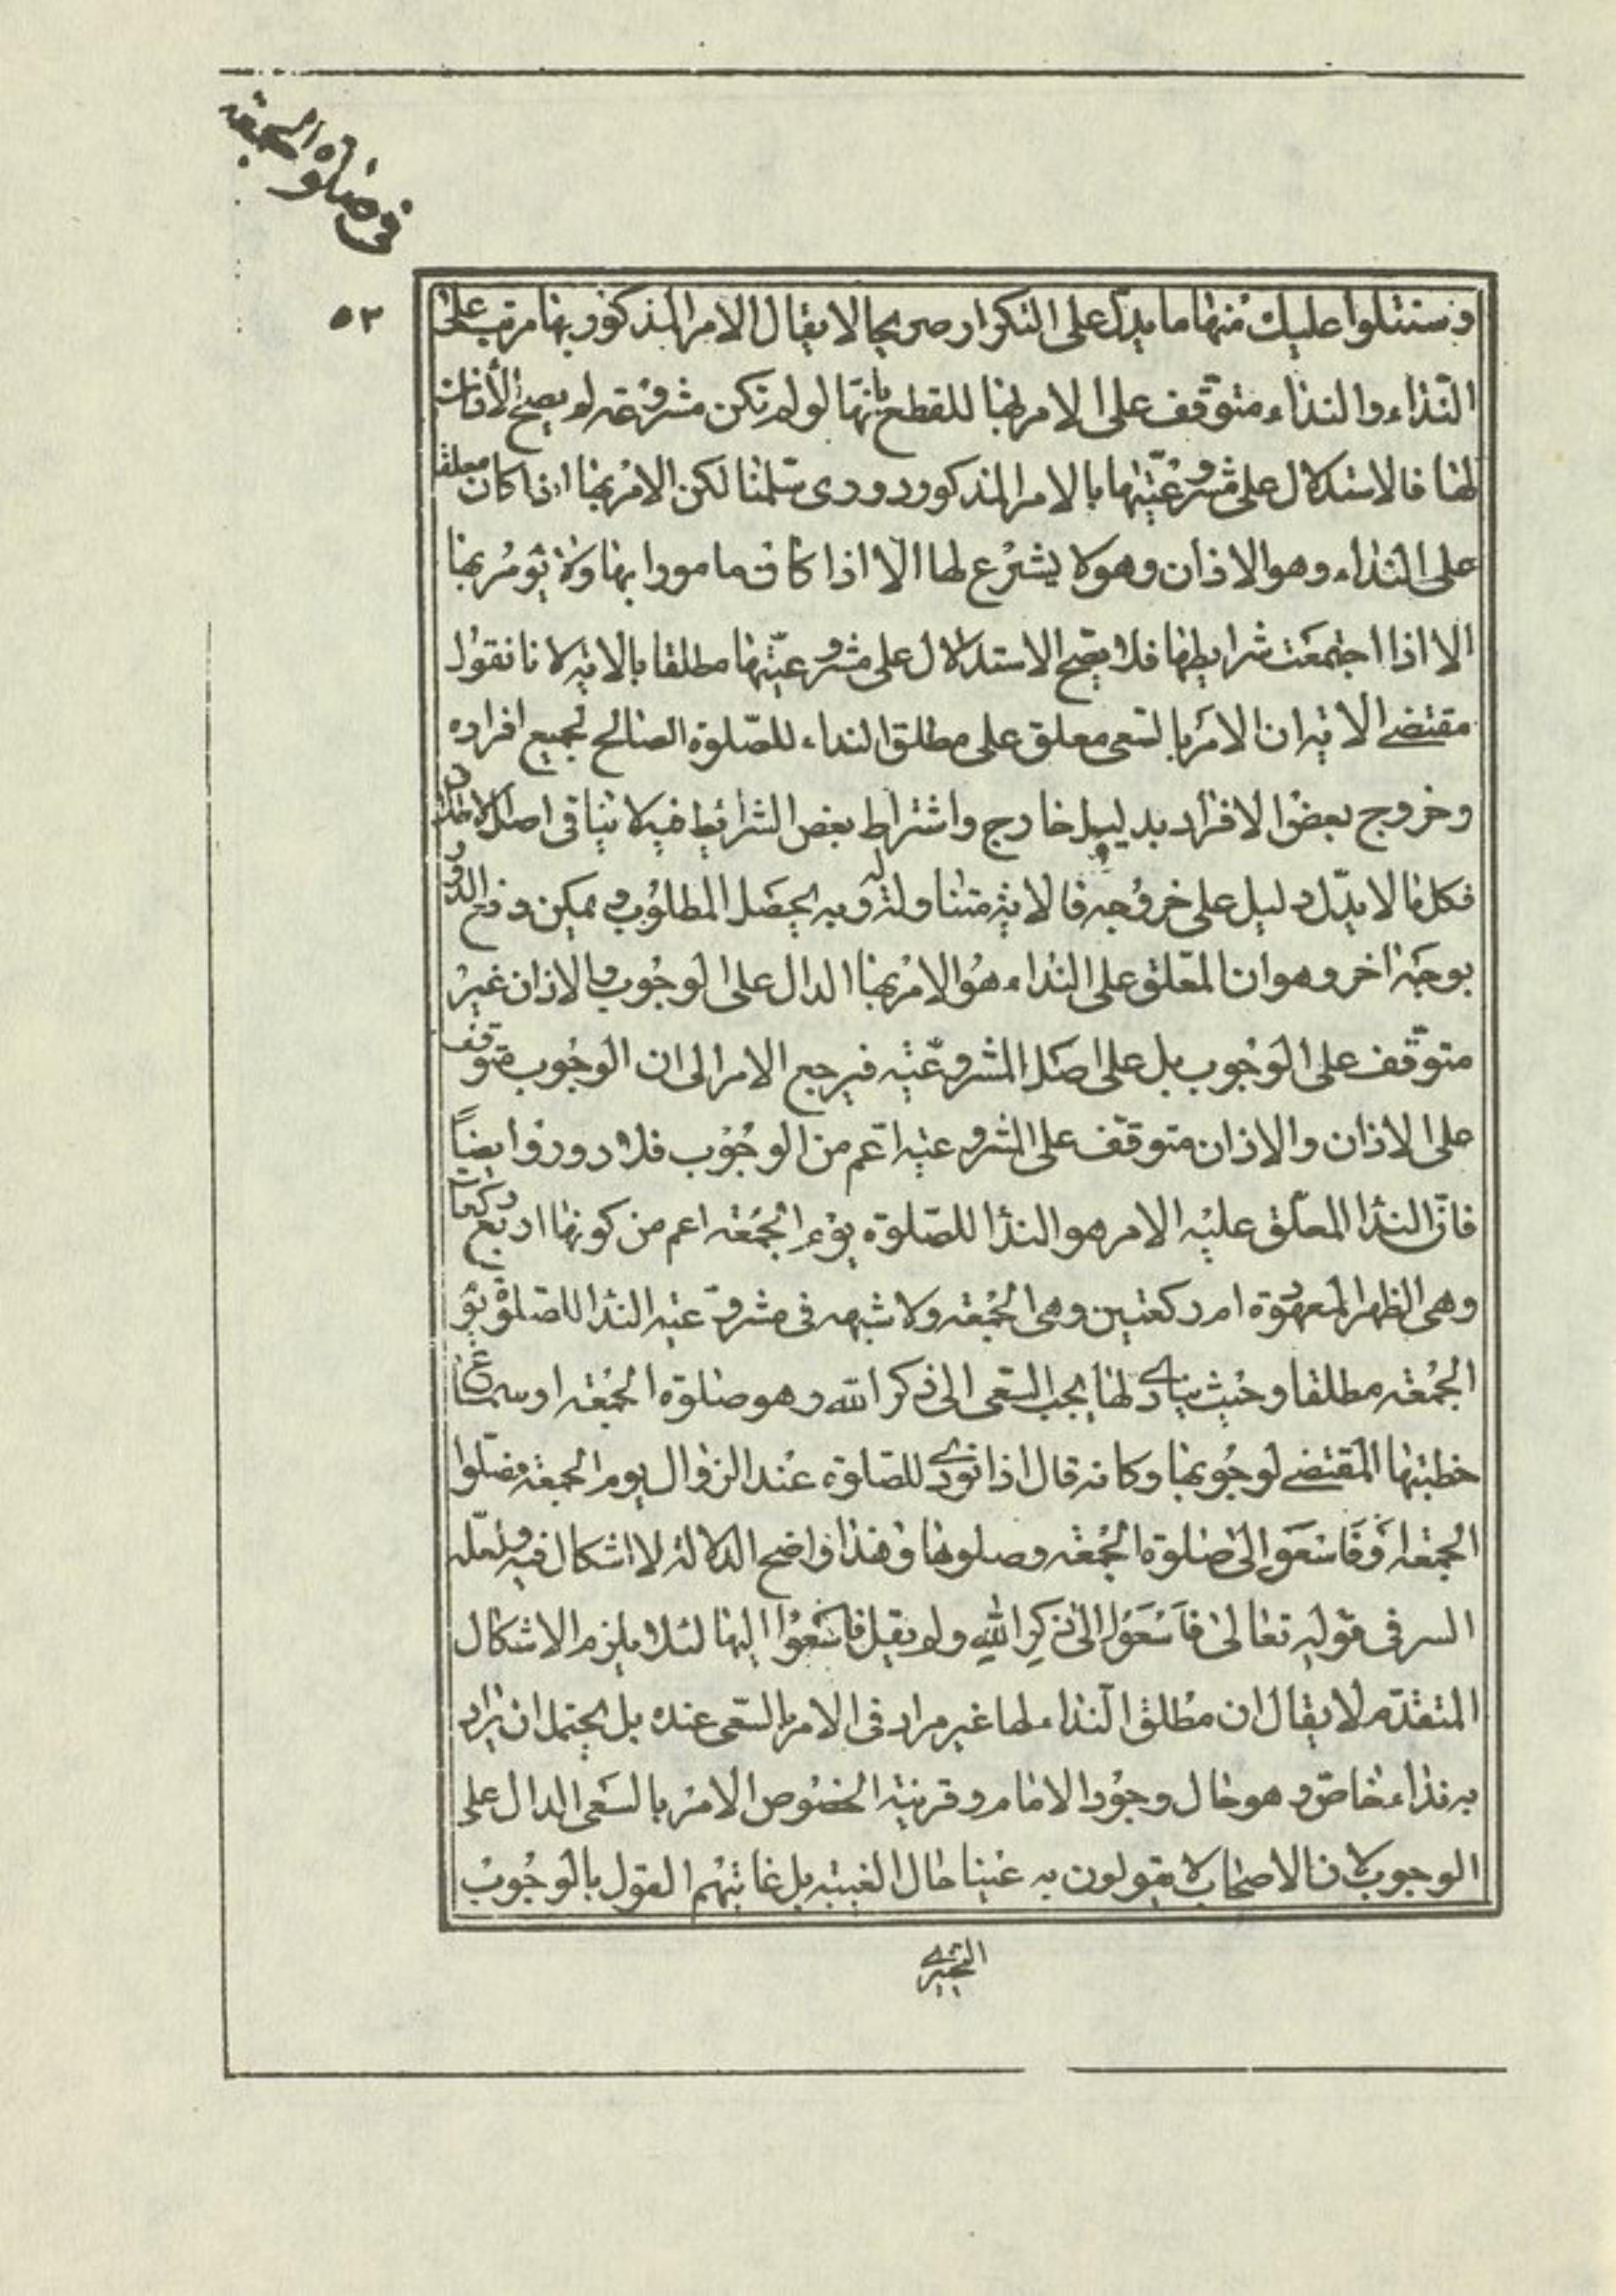 في صلوة الجمعة
٥٢
وسنتلوا عليك منها ما يدل على التكرار صريحا لا يقال الامر المذكور بها مرتب على
النداء والنداء متوقف على الامر لها للقطع بانها لو لم تكن مشروعة لم يصح الاذان
لها فالاستدلال على مشروعيتها بالامر المذكور دوري سلمنا لكن الامر بها اذا كان معلقا
على النداء وهو الاذان وهو لا يشرع لها الا اذا كان مامورا بها ولا يؤمر بها
الا اذا اجتمعت شرايطها فلا يصح الاستدلال على مشروعيتها مطلقا بالاية لانا نقول
مقتضى الاية ان الامر بالسعى معلق على مطلق النداء للصلوة الصالح لجميع افراده
وخروج بعض الافراد بدليل خارج واشتراط بعض الشرائط فيه لا ينافى اصل الاطلاق
فكل ما لا يدل دليل على خروجه فالاية متناولة له وبه يحصل المطلوب ويمكن دفع الدور
بوجه اخر وهو ان المعلق على النداء هو الامر بها الدال على الوجوب والاذان غير
متوقف على الوجوب بل على اصل المشروعية فيرجع الامر الى ان الوجوب متوقف
على الاذان والاذان متوقف على المشروعية اعم من الوجوب فلا دور وايضاً
فان الندا المعلق عليه الامر هو الندا للصلوة يوم الجمعة اعم من كونها اربع ركعات
وهى الظهر المعهودة ام ركعتين وهى الجمعة ولا شبهه فى مشروعية الندا للصلوة يوم
الجمعة مطلقا وحيث ينادى لها يجب السعى الى ذكر الله وهو صلوة الجمعة او سماع
خطبتها المقتضى لوجوبها وكانه قال اذا نودى للصلوة عند الزوال يوم الجمعة فصلوا
الجمعة او فاسعوا الى صلوة الجمعة وصلوها وهذا واضح الدلالة لا اشكال فيه ولعله
السر فى قوله تعالى فاسعوا الى ذكر الله ولم يقل فاسعوا اليها لئلا يلزم الاشكال
المتقدم لا يقال ان مطلق النداء لها غير مراد فى الامر بالسعى عنده بل يحتمل ان يراد
به نداء خاص وهو حال وجود الامام وقرينة الخصوص الامر بالسعى الدال على
الوجوب لان الاصحاب لا يقولون به عينا حال الغيبة بل غايتهم القول بالوجوب
التخييرى